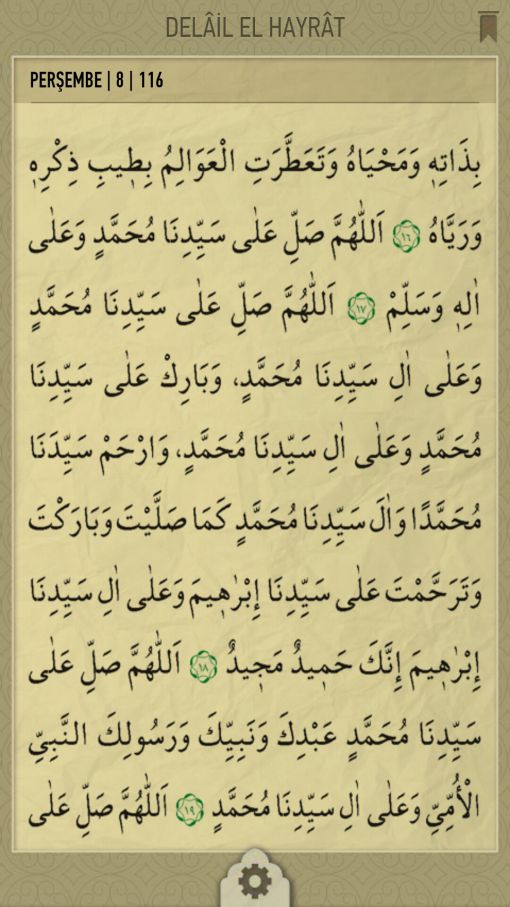 DELÂİL EL HAYRÂT
PERŞEMBE | 8 | 116
بِذَاتِهٖ وَمَحْيَاهُ وَتَعَطَّرَتِ الْعَوَالِمُ بِطٖيبِ ذِكْرِهٖ
وَرَيَّاهُ ﴿١٦﴾ اَللّٰهُمَّ صَلِّ عَلٰى سَيِّدِنَا مُحَمَّدٍ وَعَلٰى
اٰلِهٖ وَسَلِّمْ ﴿١٧﴾ اَللّٰهُمَّ صَلِّ عَلٰى سَيِّدِنَا مُحَمَّدٍ
وَعَلٰى اٰلِ سَيِّدِنَا مُحَمَّدٍ، وَبَارِكْ عَلٰى سَيِّدِنَا
مُحَمَّدٍ وَعَلٰى اٰلِ سَيِّدِنَا مُحَمَّدٍ، وَارْحَمْ سَيِّدَنَا
مُحَمَّدًا وَاٰلَ سَيِّدِنَا مُحَمَّدٍ كَمَا صَلَّيْتَ وَبَارَكْتَ
وَتَرَحَّمْتَ عَلٰى سَيِّدِنَا إِبْرٰهٖيمَ وَعَلٰى اٰلِ سَيِّدِنَا
إِبْرٰهٖيمَ إِنَّكَ حَمٖيدٌ مَجٖيدٌ ﴿١٨﴾ اَللّٰهُمَّ صَلِّ عَلٰى
سَيِّدِنَا مُحَمَّدٍ عَبْدِكَ وَنَبِيِّكَ وَرَسُولِكَ النَّبِيِّ
الْأُمِّيِّ وَعَلٰى اٰلِ سَيِّدِنَا مُحَمَّدٍ ﴿١٩﴾ اَللّٰهُمَّ صَلِّ عَلٰى